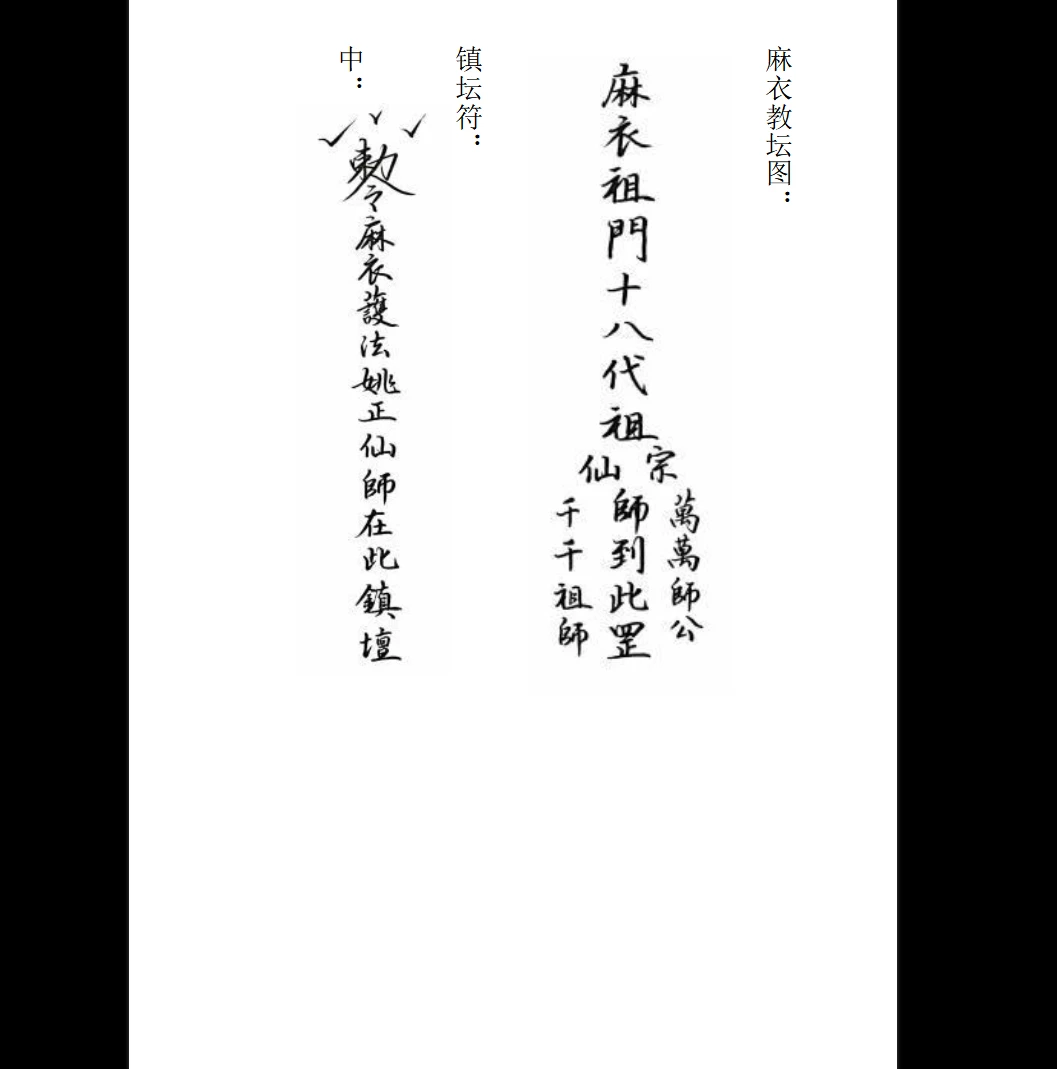 麻衣教坛图：
麻衣祖門十八代祖
宗
仙
萬萬師公
師到此罡
千千祖師
镇坛符：
中：
勅令麻衣護法姚正仙師在此鎮壇